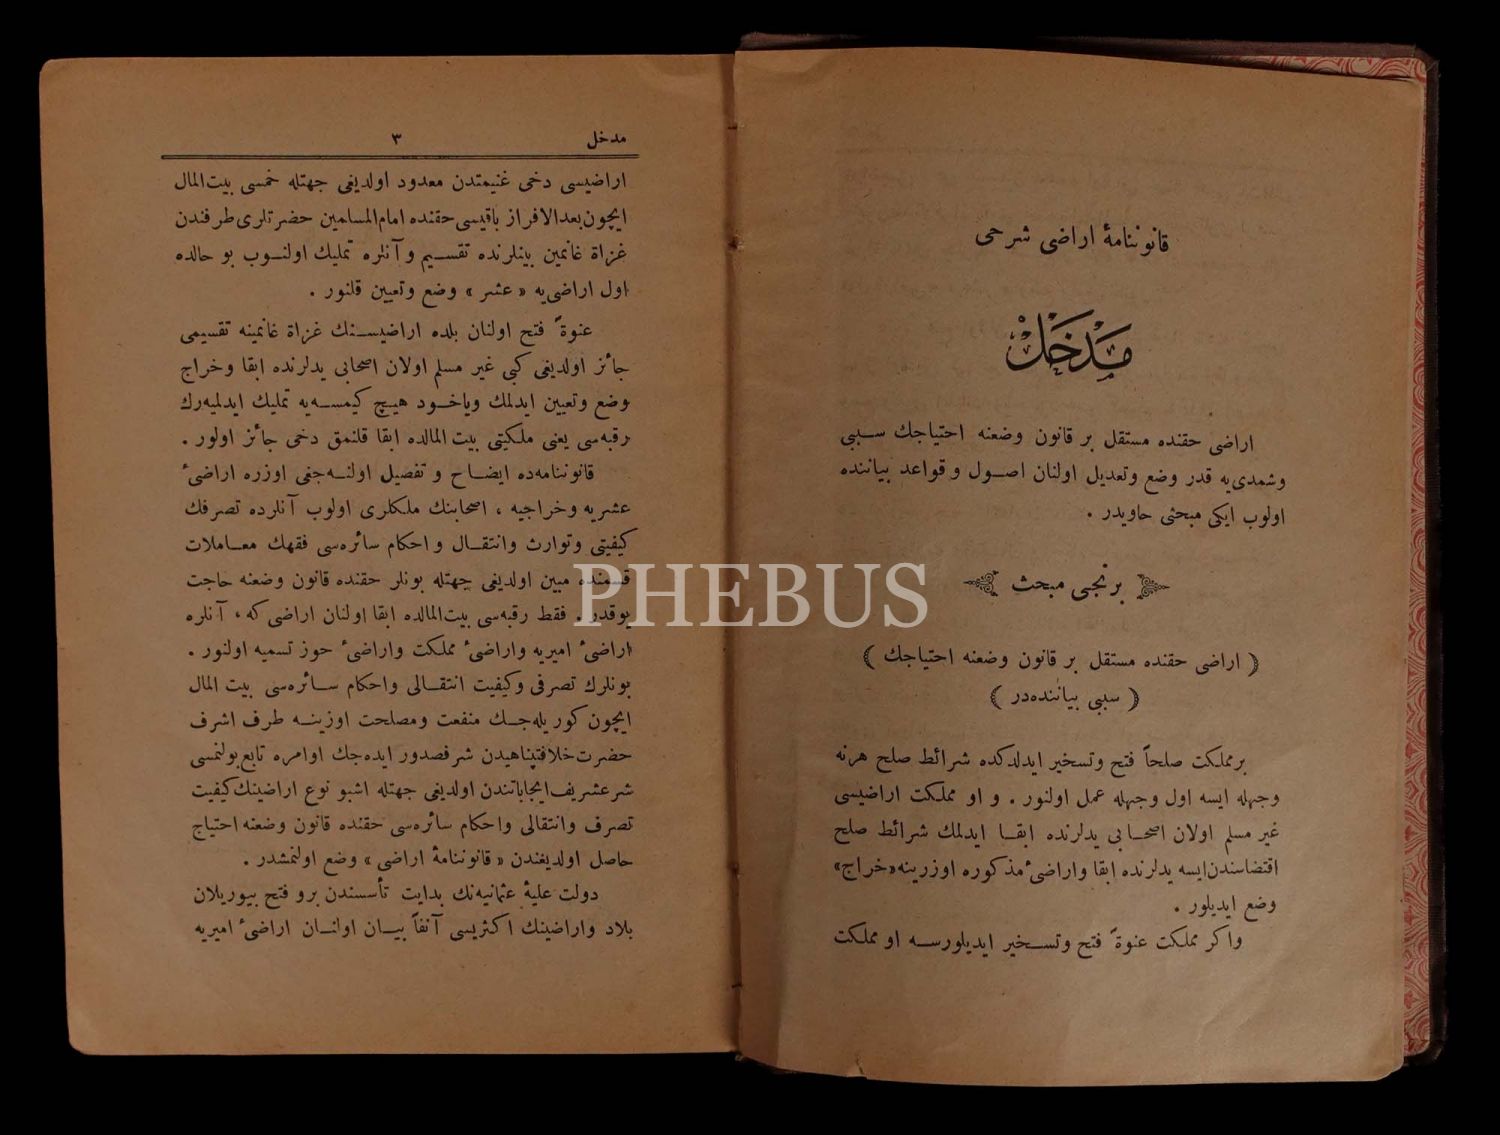 قانوننامهٔ اراضی شرحی
مدخل
اراضی حقنده مستقل بر قانون وضعنه احتیاجك سببی
وشمدی‌یه قدر وضع وتعدیل اولنان اصول وقواعد بیاننده
اولوب ایکی مبحثی حاویدر .
برنجی مبحث
( اراضی حقنده مستقل بر قانون وضعنه احتیاجك )
( سببی بیاننده‌در )
برمملکت صلحاً فتح وتسخیر ایدلدکده شرائط صلح هرنه
وجهله ایسه اول وجهله عمل اولنور . و او مملکت اراضیسی
غیر مسلم اولان اصحابی یدلرنده ابقا ایدلمك شرائط صلح
اقتضاسندن‌ایسه یدلرنده ابقا واراضیٔ مذکوره اوزرینه «خراج»
وضع ایدیلور .
واکر مملکت عنوةً فتح وتسخیر ایدیلورسه او مملکت
مدخل ٣
اراضیسی دخی غنیمتدن معدود اولدیغی جهتله خمسی بیت‌المال
ایچون بعدالافراز باقیسی حقنده امام‌المسلمین حضرتلری طرفندن
غزاة غانمین بینلرنده تقسیم و آنلره تملیك اولنوب بو حالده
اول اراضی‌یه « عشر » وضع وتعیین قلنور .
عنوةً فتح اولنان بلده اراضیسنك غزاة غانمینه تقسیمی
جائز اولدیغی کبی غیر مسلم اولان اصحابی یدلرنده ابقا وخراج
وضع وتعیین ایدلمك ویاخود هیچ کیمسه‌یه تملیك ایدلمیه‌رك
رقبه‌سی یعنی ملکیتی بیت المالده ابقا قلنمق دخی جائز اولور .
قانوننامه‌ده ایضاح و تفصیل اولنه‌جغی اوزره اراضیٔ
عشریه وخراجیه ، اصحابنك ملکلری اولوب آنلرده تصرفك
کیفیتی وتوارث وانتقال و احکام سائره‌سی فقهك معاملات
قسمنده مبین اولدیغی جهتله بونلر حقنده قانون وضعنه حاجت
یوقدر . فقط رقبه‌سی بیت‌المالده ابقا اولنان اراضی که ، آنلره
اراضیٔ امیریه واراضیٔ مملکت واراضیٔ حوز تسمیه اولنور .
بونلرك تصرفی وکیفیت انتقالی واحکام سائره‌سی بیت المال
ایچون کوریله‌جك منفعت ومصلحت اوزرینه طرف اشرف
حضرت خلافتپناهیدن شرفصدور ایده‌جك اوامره تابع بولنمسی
شرع‌شریف ایجاباتندن اولدیغی جهتله اشبو نوع اراضینك کیفیت
تصرف وانتقالی واحکام سائره‌سی حقنده قانون وضعنه احتیاج
حاصل اولدیغندن « قانوننامهٔ اراضی » وضع اولنمشدر .
دولت علیهٔ عثمانیه‌نك بدایت تأسسندن برو فتح بیوریلان
بلاد واراضینك اکثریسی آنفاً بیان اولنان اراضیٔ امیریه
PHEBUS